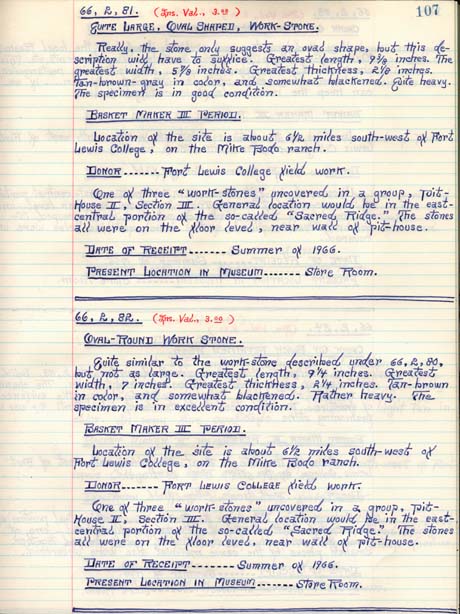 107
66, 2, 81. (Ins. Val., 3.00)
Quite Large, Oval Shaped, Work-Stone.
Really, the stone only suggests an oval shape, but this de-
scription will have to suffice. Greatest length, 9 3/8 inches. The
greatest width, 5 7/8 inches. Greatest thickness, 2 1/8 inches.
Tan-brown-gray in color, and somewhat blackened. Quite heavy.
The specimen is in good condition.
Basket Maker III Period.
Location of the site is about 6 1/2 miles south-west of Fort
Lewis College, on the Mike Bodo ranch.
Donor ------- Fort Lewis College field work.
One of three "work-stones" uncovered in a group, Pit-
House II, Section III. General location would be in the east-
central portion of the so-called "Sacred Ridge." The stones
all were on the floor level, near wall of pit-house.
Date of Receipt ------ Summer of 1966.
Present Location in Museum ------- Store Room.
66, 2, 82. (Ins. Val., 3.00)
Oval-Round Work Stone.
Quite similar to the work-stone described under 66, 2, 80,
but not as large. Greatest length, 9 1/4 inches. Greatest
width, 7 inches. Greatest thickness, 2 1/4 inches. Tan-brown
in color, and somewhat blackened. Rather heavy. The
specimen is in excellent condition.
Basket Maker III Period.
Location of the site is about 6 1/2 miles south-west of
Fort Lewis College, on the Mike Bodo ranch.
Donor ------ Fort Lewis College field work.
One of three "work-stones" uncovered in a group, Pit-
House II, Section III. General location would be in the east-
central portion of the so-called "Sacred Ridge." The stones
all were on the floor level, near wall of pit-house.
Date of Receipt ------ Summer of 1966.
Present Location in Museum ------ Store Room.